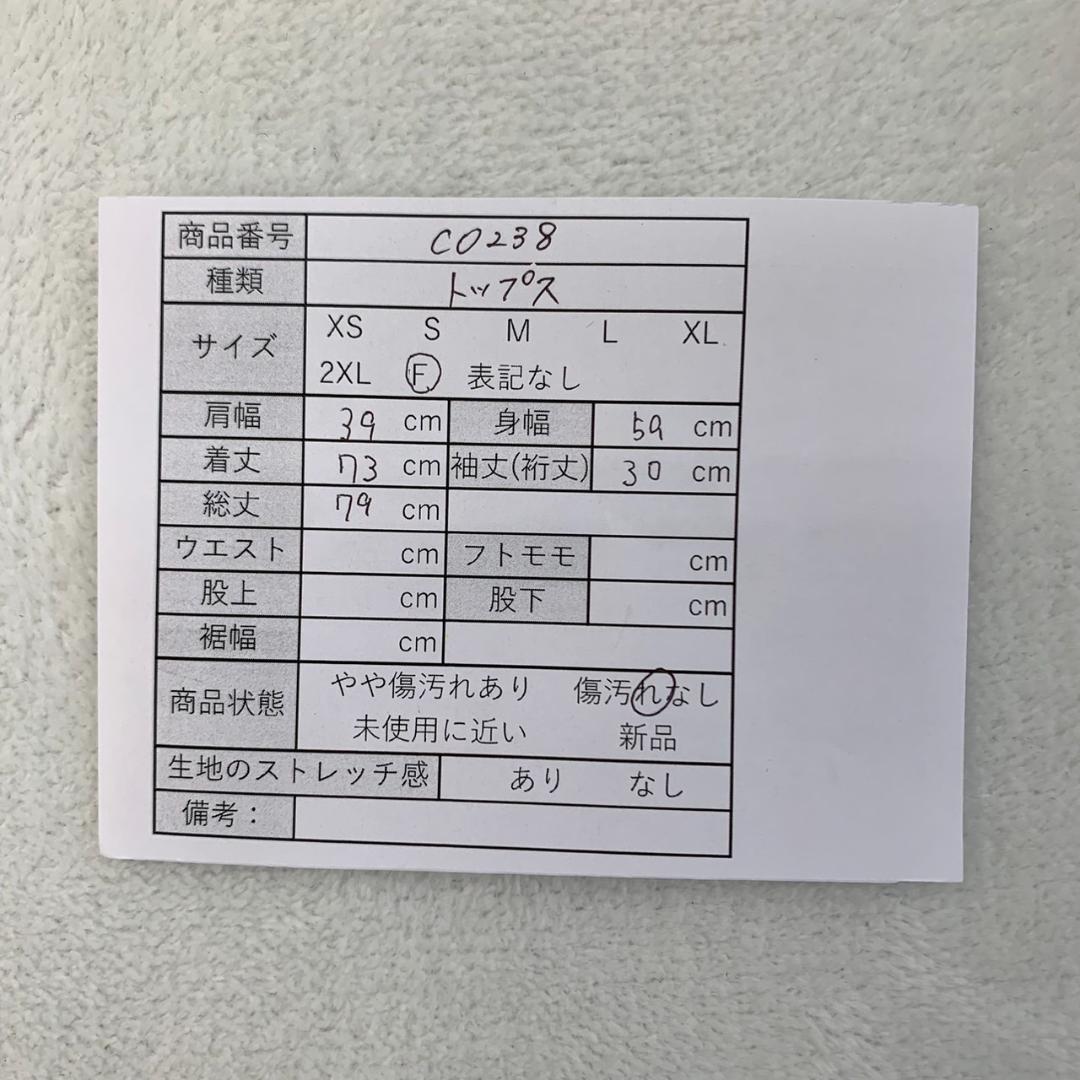 商品番号 CO238
種類 トップス
サイズ XS S M L XL
2XL F 表記なし
肩幅 39 cm 身幅 59 cm
着丈 73 cm 袖丈(裄丈) 30 cm
総丈 79 cm
ウエスト cm フトモモ cm
股上 cm 股下 cm
裾幅 cm
商品状態 やや傷汚れあり 傷汚れなし
未使用に近い 新品
生地のストレッチ感 あり なし
備考：